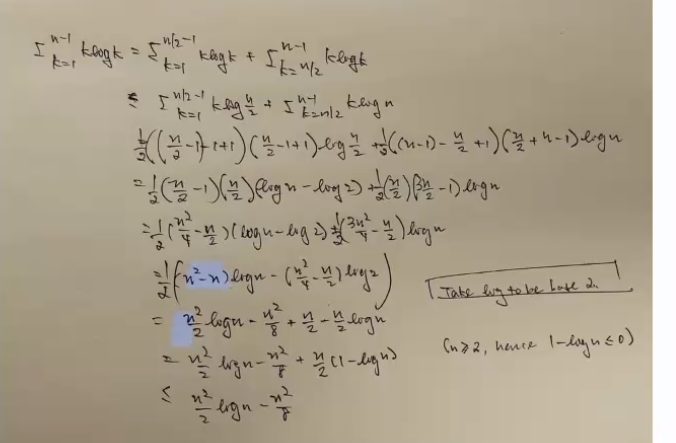 Σ_{k=1}^{n-1} k log k = Σ_{k=1}^{n/2-1} k log k + Σ_{k=n/2}^{n-1} k log k
≤ Σ_{k=1}^{n/2-1} k log n/2 + Σ_{k=n/2}^{n-1} k log n
1/2((n/2-1)-1+1)(n/2-1+1) log n/2 + 1/2((n-1)-n/2+1)(n/2+n-1) log n
= 1/2(n/2-1)(n/2)(log n - log 2) + 1/2(n/2)(3n/2-1) log n
= 1/2(n²/4-n/2)(log n - log 2) + 1/2(3n²/4-n/2) log n
= 1/2((n²-n) log n - (n²/4-n/2) log 2)
Take log to be base 2.
= n²/2 log n - n²/8 + n/2 - n/2 log n
= n²/2 log n - n²/8 + n/2(1-log n)
(n≥2, hence 1-log n ≤ 0)
≤ n²/2 log n - n²/8